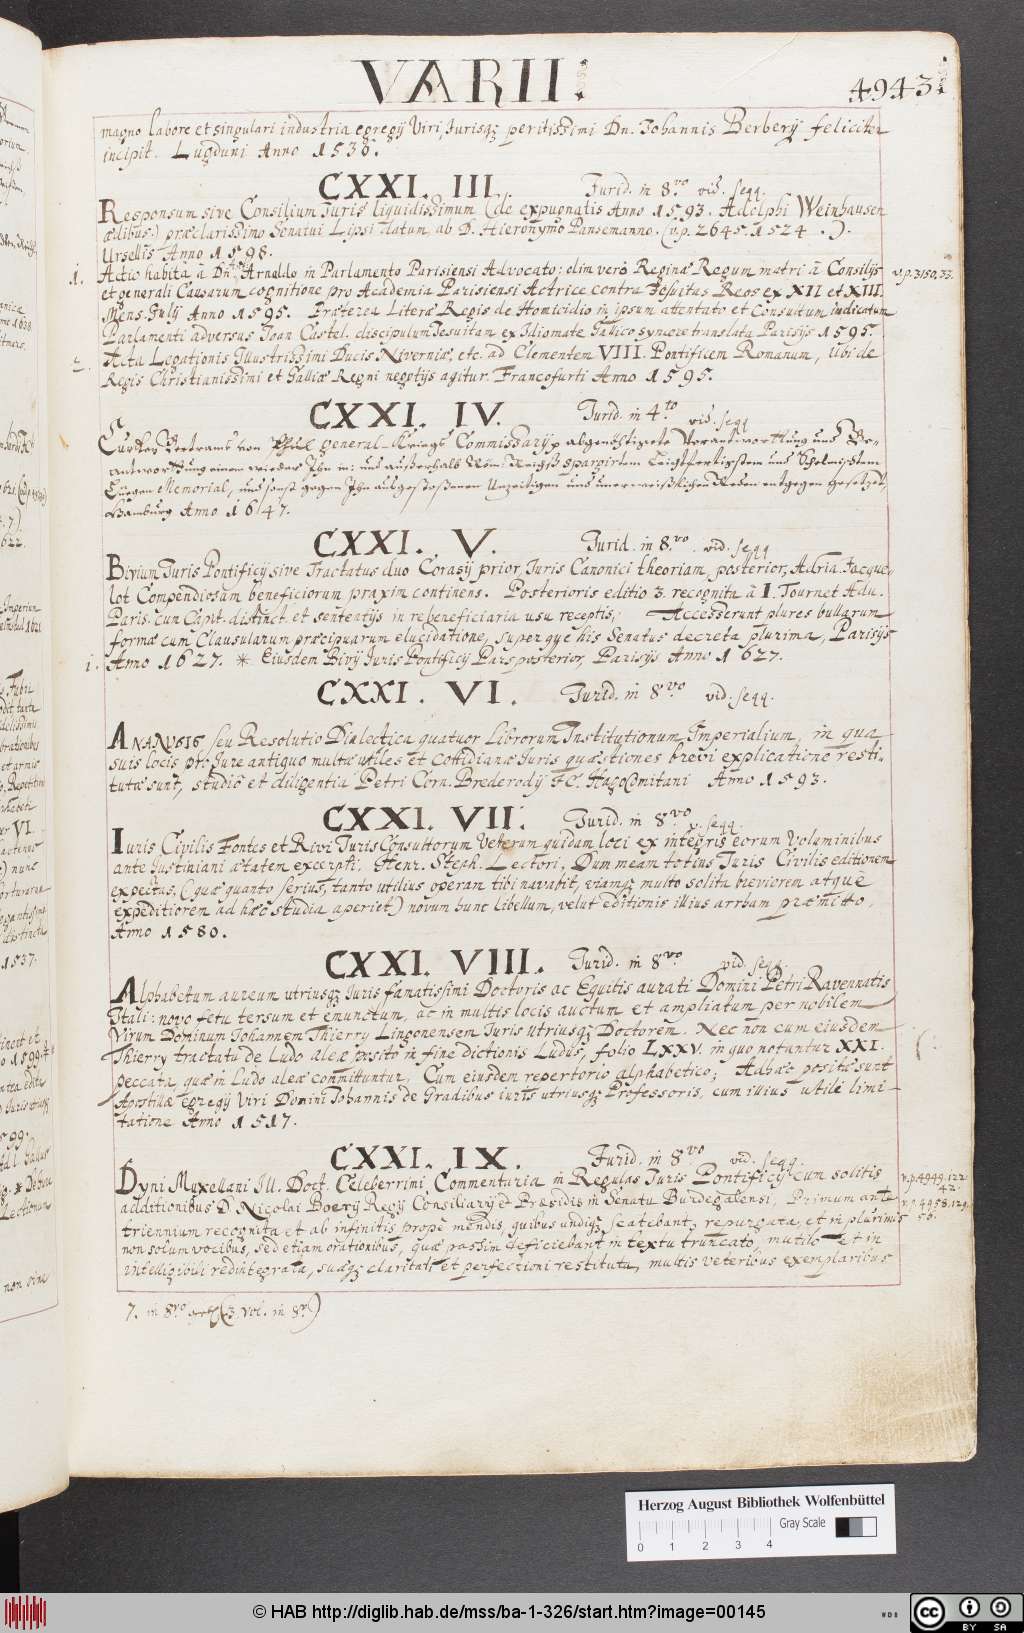 VARII.
4943.
magno labore et singulari industria egregij Viri, Jurisqz peritissimi Dn. Johannis Berberij feliciter
incipit. Lugduni Anno 1536.
CXXI. III. Jurid. in 8.vo vid. seqq.
Responsum sive Consilium Juris liquidissimum (de expugnatis Anno 1593. Adolphi Weinhausen
ædibus.) præclarissimo Senatui Lipsi datum, ab D. Hieronymo Pansemanno. (v.p. 2645. 1524 . ).
Ursellis Anno 1598.
1. Actio habita à Dn. Arnaldo in Parlamento Parisiensi Advocato; olim verò Reginæ Regum matri à Consilijs v.p. 3150,33.
et generali Causarum cognitione pro Academia Parisiensi Actrice contra Jesuitas Reos ex XII et XIII.
Mens. Julij Anno 1595. Præterea Literæ Regis de Homicidio in ipsum attentato et Consultum indicatum
Parlamenti adversus Joan Castel. discipulum Jesuitam ex Idiomate Gallico syncere translata Parisijs 1595.
2. Acta Legationis Illustrissimi Ducis Niverniæ, etc. ad Clementem VIII. Pontificem Romanum, ubi de
Regis Christianissimi et Galliæ Regni negotijs agitur. Francofurti Anno 1595.
CXXI. IV. Jurid. in 4.to vid. seqq
general-Kriegs Commissarij abgenöhtigete Verantworthung und
antworthung einem wieder Ihn in: und außerhalb Röm: Reichß spargirtem Leichtfertigstem und Schelmischtem
Lügen Memorial, und sonst gegen Ihn außgestoßenen Unzeitigen und unerweißlichen Reden entgegen gesetzet,
Hamburg Anno 1647.
CXXI. V. Jurid. in 8.vo. vid. seqq
Bivium Juris Pontificij sive Tractatus duo Corasij prior, Juris Canonici theoriam, posterior, Adria. Jacque-
lot Compendiosam beneficiorum praxim continens. Posterioris editio 3. recognita à I. Tournet Adu.
Paris. cum Capit. distinct. et sententijs in re beneficiaria usu receptis; Accesserunt plures bullarum
formæ cum Clausularum præcipuarum elucidatione, superque his Senatus decreta plurima, Parisijs
1. Anno 1627. * Eiusdem Bivij Juris Pontificij Pars posterior, Parisijs Anno 1627.
CXXI. VI. Jurid. in 8.vo vid. seqq.
ANAΛYSIS seu Resolutio Dialectica quatuor Librorum Institutionum Imperialium, in qua
suis locis pro Jure antiquo multæ utiles et Cottidianæ Juris quæstiones brevi explicatione resti-
tutæ sunt, studio et diligentia Petri Corn. Brederodij JC. Hagocomitani Anno 1593.
CXXI. VII. Jurid. in 8.vo v. seqq.
Iuris Civilis Fontes et Rivi Jurisconsultorum Veterum quidam loci ex integris eorum Voluminibus
ante Justiniani ætatem excerpti. Henr. Steph. Lectori, Dum meam totius Juris Civilis editionem
expectas, (quæ quanto serius, tanto utilius operam tibi navabit, viamqz multo solita breviorem atque
expeditiorem ad hæc studia aperiet) novum hunc libellum, velut editionis illius arrham præmitto,
Anno 1580.
CXXI. VIII. Jurid. in 8.vo vid. seqq.
Alphabetum aureum utriusqz Juris famatissimi Doctoris ac Equitis aurati Domini Petri Ravennatis
Itali: novo fetu tersum et emunctum, ac in multis locis auctum et ampliatum per nobilem
Virum Dominum Johannem Thierry Lingonensem Juris utriusqz Doctorem. Nec non cum eiusdem
Thierry tractatu de Ludo aleæ posito in fine dictionis Ludus, folio LXXV. in quo notantur XXI.
peccata, quæ in Ludo aleæ committuntur, Cum eiusdem repertorio alphabetico; Adhæc positæ sunt
Apostillæ egregij Viri Domini Johannis de Gradibus iuris utriusqz Professoris, cum illius utile limi-
tatione Anno 1517.
CXXI. IX. Jurid. in 8.vo vid. seqq.
Dyni Muxellani Ill. Doct. Celeberrimi Commentaria in Regulas Juris Pontificij cum solitis v.p. 4949,122
additionibus D. Nicolai Boerij Regij Consiliarij et Præsidis in Senatu Burdegalensi, Primum ante
triennium recognita et ab infinitis propè mendis, quibus undiqz scatebant, repurgata, et in plurimis
non solum vocibus, sed etiam orationibus, quæ passim deficiebant in textu truncato, mutilo et in
intelligibili redintegrata, suæqz claritati et perfectioni restituta, multis veteribus exemplaribus
7. in 8.vo (3. vol. in 8.)
Herzog August Bibliothek Wolfenbüttel
Gray Scale
0 1 2 3 4
© HAB http://diglib.hab.de/mss/ba-1-326/start.htm?image=00145
cc BY SA